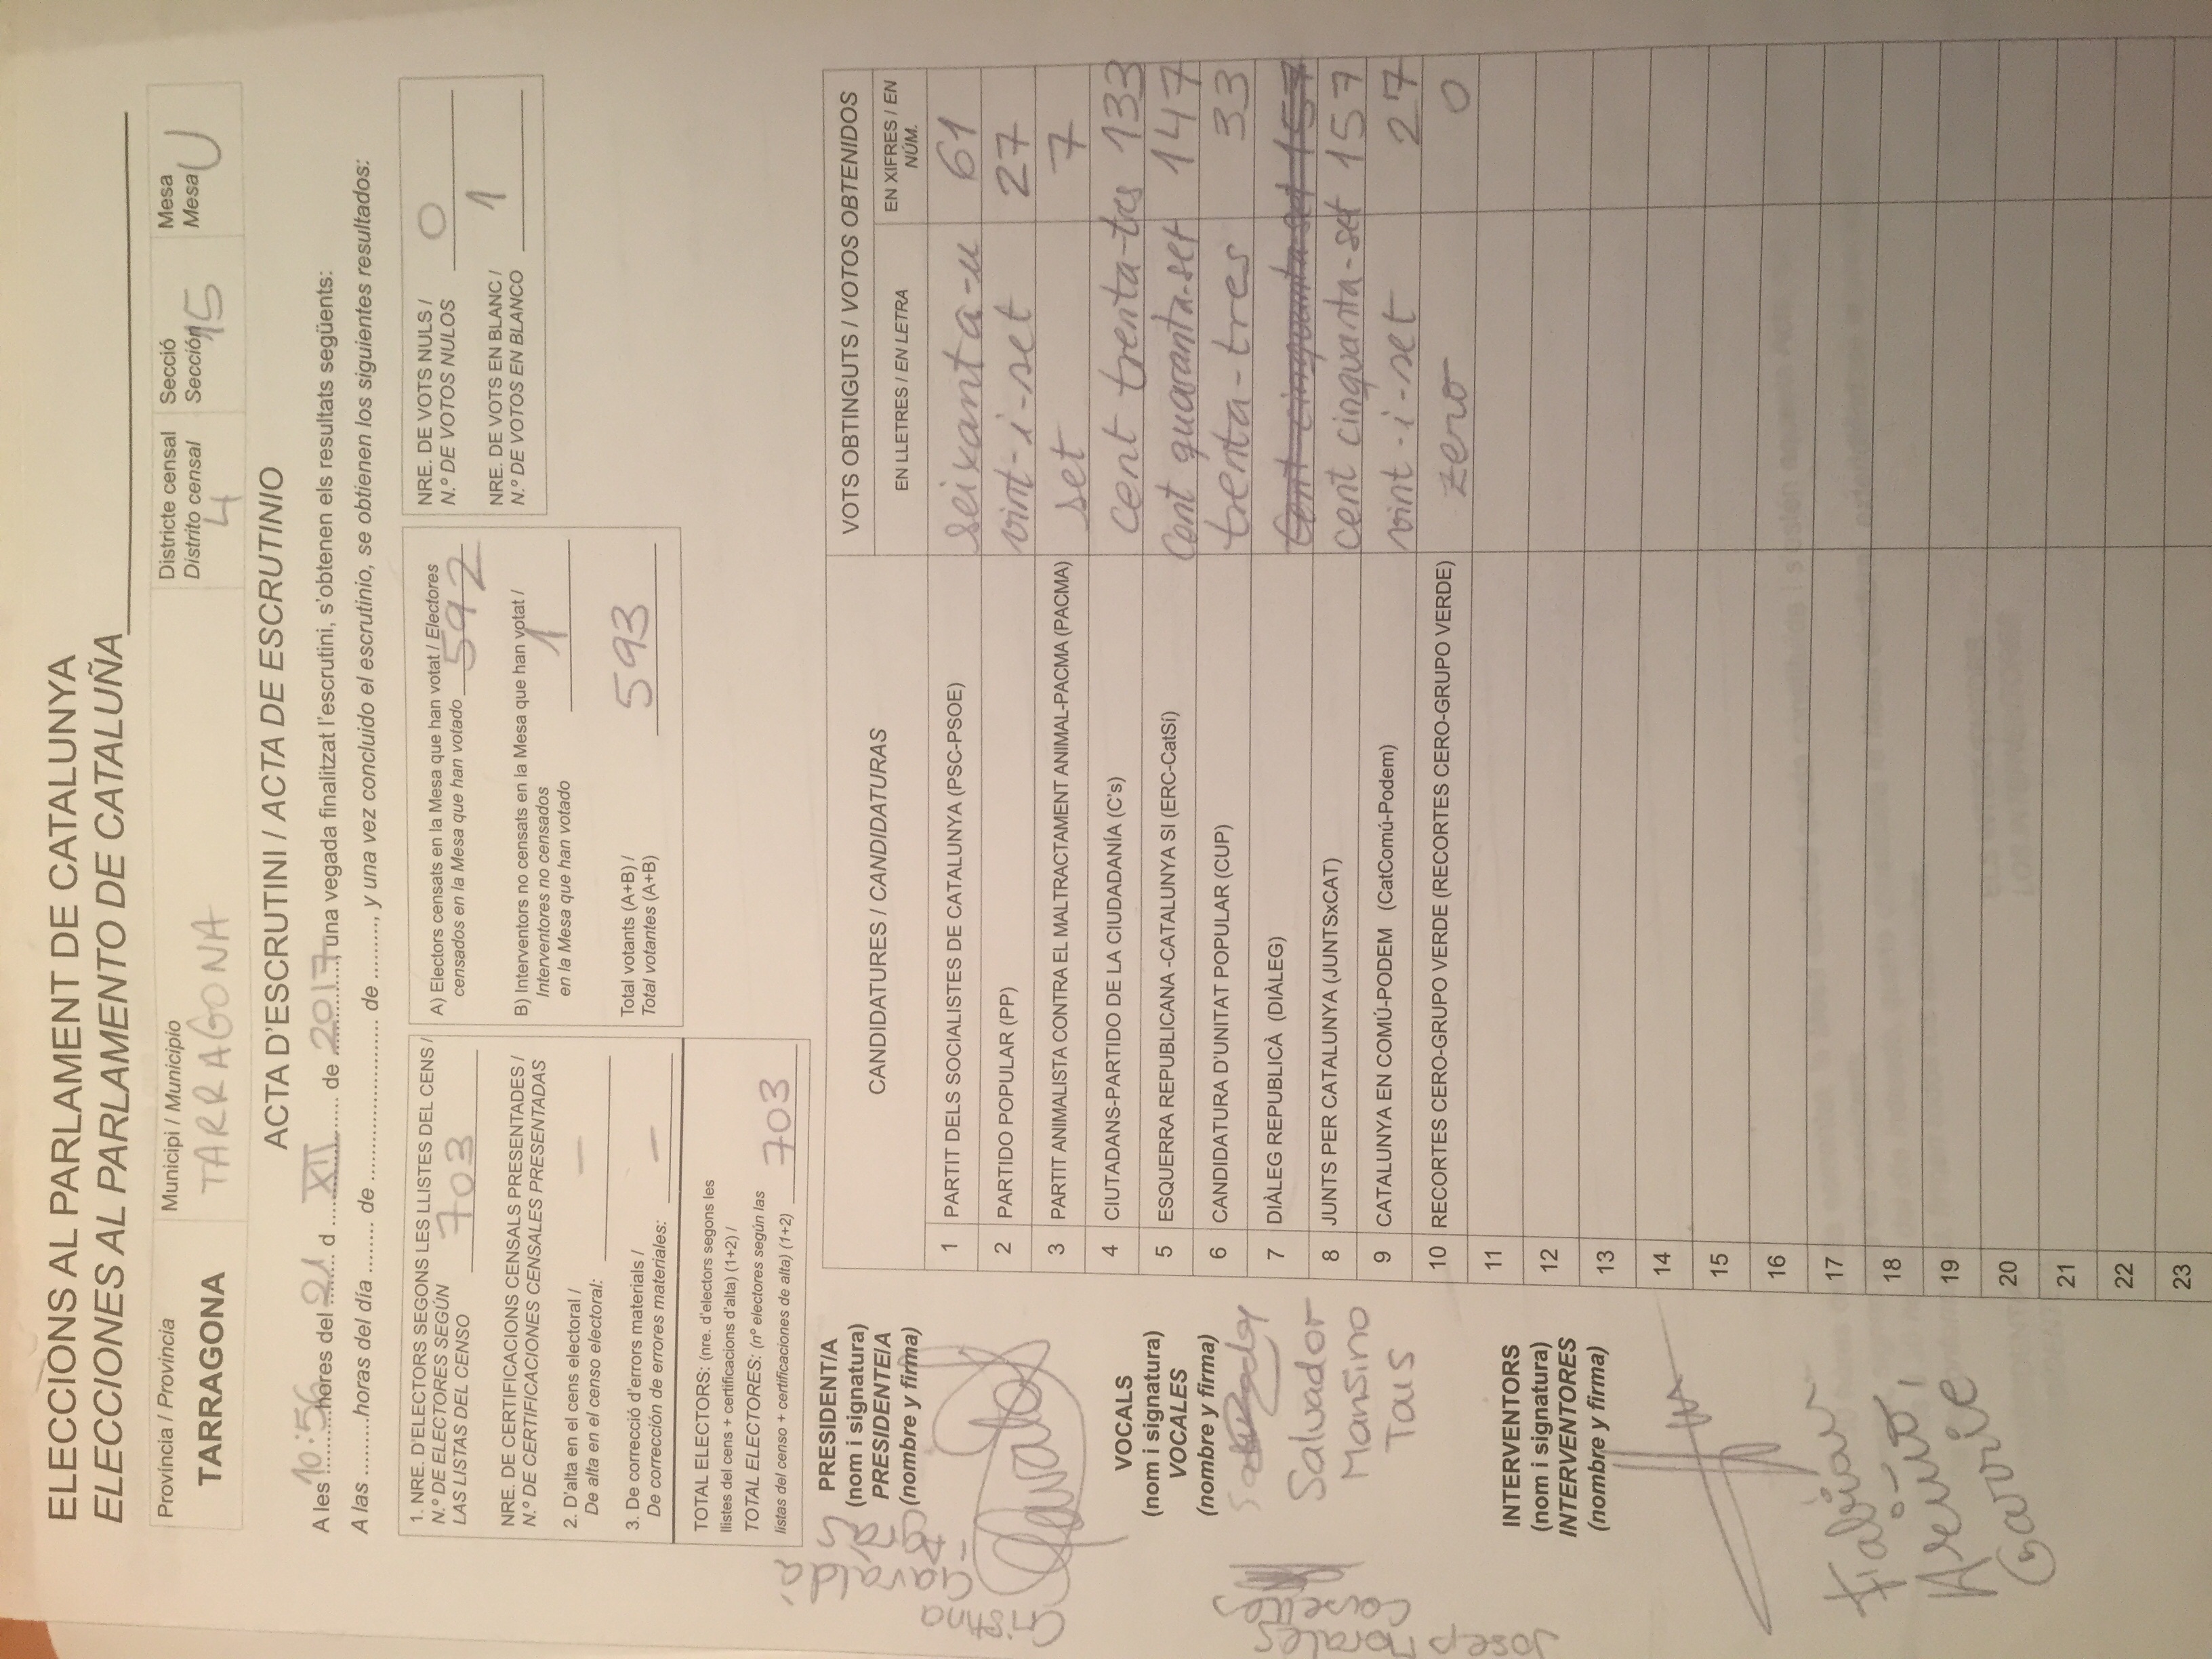 ELECCIONS AL PARLAMENT DE CATALUNYA
ELECCIONES AL PARLAMENTO DE CATALUÑA
Província / Provincia
TARRAGONA
Municipi / Municipio
TARRAGONA
Districte censal
Distrito censal
4
Secció
Sección 15
Mesa
Mesa U
ACTA D'ESCRUTINI / ACTA DE ESCRUTINIO
A les 10:56 hores del 21 d XII de 2017, una vegada finalitzat l'escrutini, s'obtenen els resultats següents:
A las .........horas del día ........ de ........................ de ........., y una vez concluido el escrutinio, se obtienen los siguientes resultados:
1. NRE. D'ELECTORS SEGONS LES LLISTES DEL CENS /
N.º DE ELECTORES SEGÚN
LAS LISTAS DEL CENSO 703
NRE. DE CERTIFICACIONS CENSALS PRESENTADES /
N.º DE CERTIFICACIONES CENSALES PRESENTADAS
2. D'alta en el cens electoral /
De alta en el censo electoral: —
3. De correcció d'errors materials /
De corrección de errores materiales: —
TOTAL ELECTORS: (nre. d'electors segons les
llistes del cens + certificacions d'alta) (1+2) /
TOTAL ELECTORES: (nº electores según las
listas del censo + certificaciones de alta) (1+2) 703
A) Electors censats en la Mesa que han votat / Electores
censados en la Mesa que han votado 592
B) Interventors no censats en la Mesa que han votat /
Interventores no censados
en la Mesa que han votado 1
Total votants (A+B) /
Total votantes (A+B) 593
NRE. DE VOTS NULS /
N.º DE VOTOS NULOS 0
NRE. DE VOTS EN BLANC /
N.º DE VOTOS EN BLANCO 1
PRESIDENT/A
(nom i signatura)
PRESIDENTE/A
(nombre y firma)
Cristina
Gavaldà
i Agràs
VOCALS
(nom i signatura)
VOCALES
(nombre y firma)
Salvador
Mansino
Tais
Josep Morales
Caselles
INTERVENTORS
(nom i signatura)
INTERVENTORES
(nombre y firma)
Fabian
Ariño,
CANDIDATURES / CANDIDATURAS
VOTS OBTINGUTS / VOTOS OBTENIDOS
EN LLETRES / EN LETRA
EN XIFRES / EN
NÚM.
1 PARTIT DELS SOCIALISTES DE CATALUNYA (PSC-PSOE) seixanta-u 61
2 PARTIDO POPULAR (PP) vint-i-set 27
3 PARTIT ANIMALISTA CONTRA EL MALTRACTAMENT ANIMAL-PACMA (PACMA) set 7
4 CIUTADANS-PARTIDO DE LA CIUDADANÍA (C's) cent trenta-tres 133
5 ESQUERRA REPUBLICANA -CATALUNYA SI (ERC-CatSí) Cent quaranta-set 147
6 CANDIDATURA D'UNITAT POPULAR (CUP) trenta-tres 33
7 DIÀLEG REPUBLICÀ (DIÀLEG) Cent cinquanta set 157
8 JUNTS PER CATALUNYA (JUNTSxCAT) cent cinquanta-set 157
9 CATALUNYA EN COMÚ-PODEM (CatComú-Podem) vint-i-set 27
10 RECORTES CERO-GRUPO VERDE (RECORTES CERO-GRUPO VERDE) zero 0
11
12
13
14
15
16
17
18
19
20
21
22
23